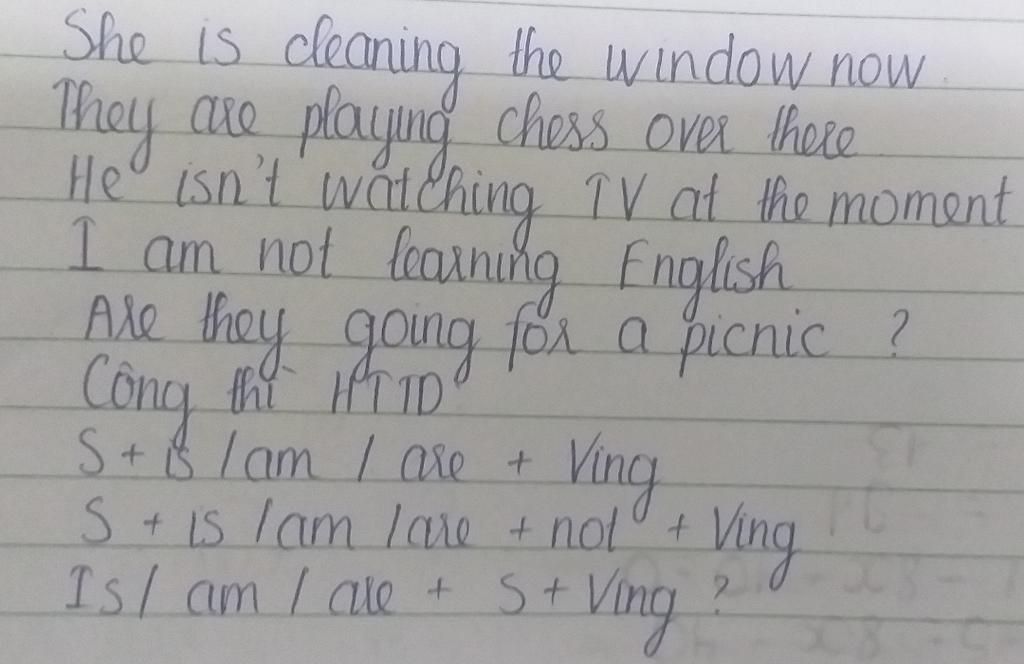 She is cleaning the window now.
They are playing chess over there
He isn't watching TV at the moment
I am not learning English
Are they going for a picnic ?
Công thì HTTD
S + is / am / are + Ving
S + is / am / are + not + Ving
Is / am / are + S + Ving ?